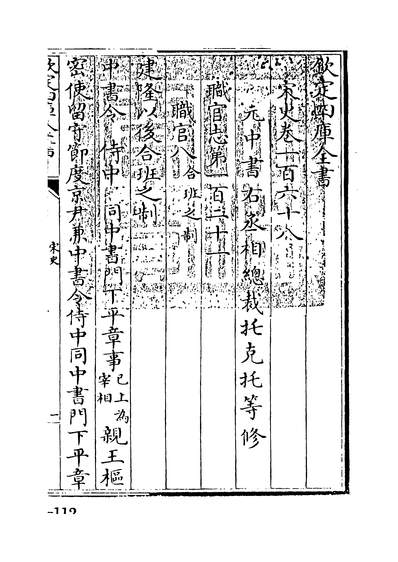 欽定四庫全書
宋史卷一百六十八
元中書右丞相總裁托克托等修
職官志第一百二十一
職官八合班之制
建隆以後合班之制
中書令 侍中 同中書門下平章事已上為宰相親王樞
密使留守節度京尹兼中書令侍中同中書門下平章
欽定四庫全書
宋史
一
-112